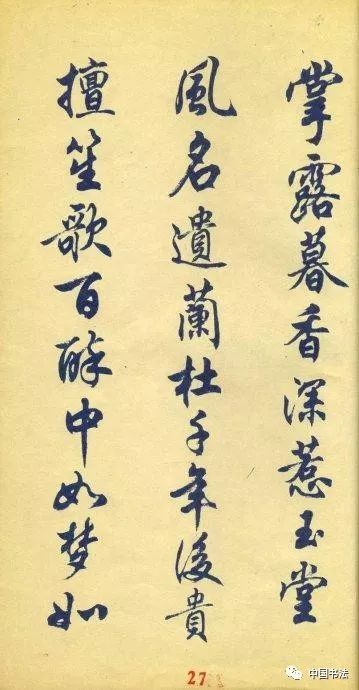 掌露暮香深惹玉堂
風名遺蘭杜千年後貴
擅笙歌百醉中如梦如
27
中国书法